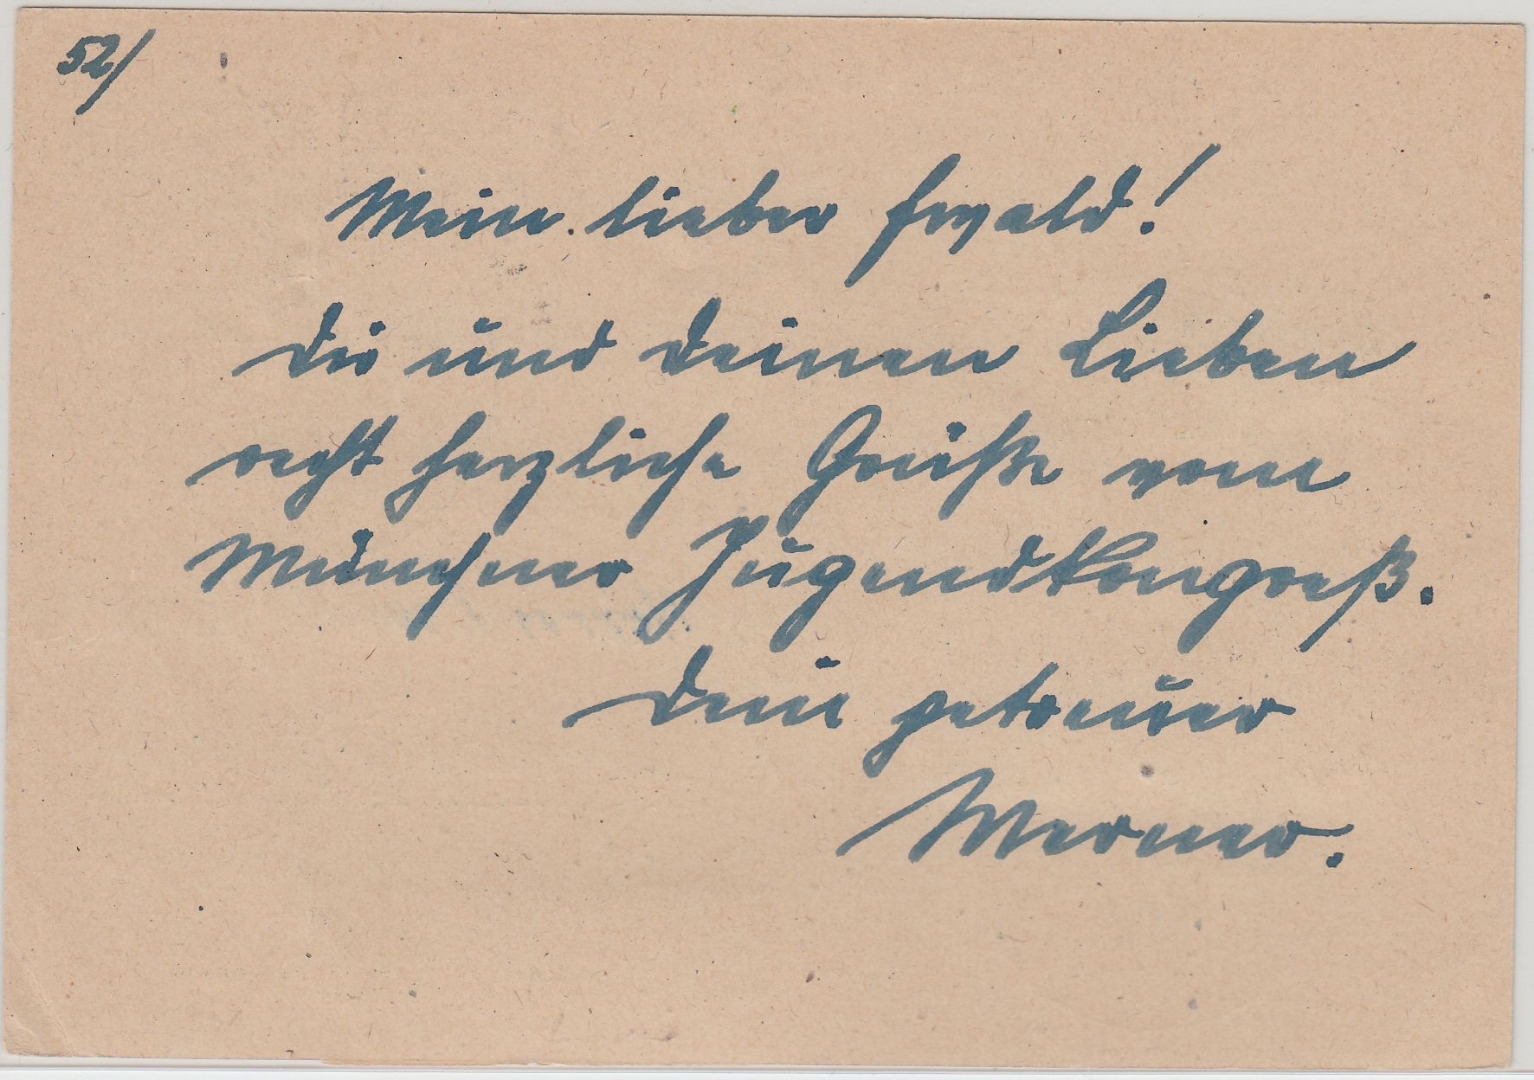 52/
Mein lieber Ewald!
Dir und Deinen Lieben
recht herzliche Grüße vom
Münchner Jugendkongreß.
Dein getreuer
Werner.